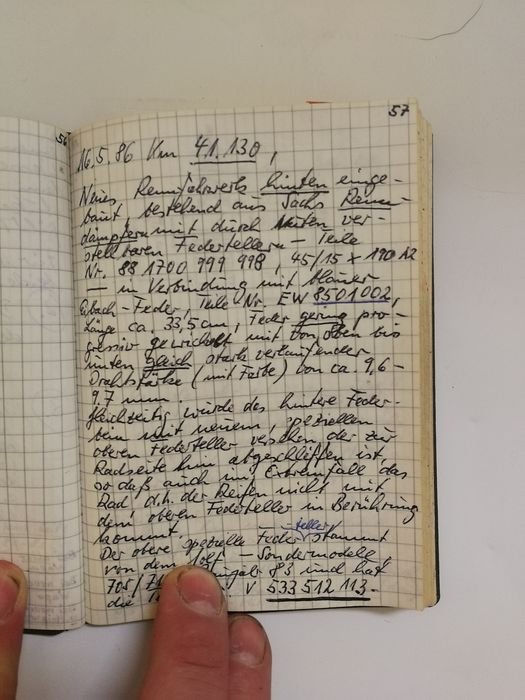 56
57
16.5.86 Km 41.130,
Neues Rennfahrwerk hinten einge-
baut, bestehend aus Sachs Renn-
dämpfern mit durch Nuten ver-
stellbaren Federtellern – Teile
Nr. 88 1700 999 998, 45/15 x 190 A2
– in Verbindung mit blauer
Eibach-Feder, Teile Nr. EW 8501002,
Länge ca. 33,5 cm, Feder gering pro-
gressiv gewickelt mit von oben bis
unten gleich stark verlaufender
Drahtstärke (mit Farbe) von ca. 9,6 –
9,7 mm.
Gleichzeitig wurde das hintere Feder-
bein mit neuem, speziellen
oberen Federteller versehen, der zur
Radseite hin abgeschliffen ist,
so daß auch im Extremfall das
Rad d.h. der Reifen nicht mit
dem oberen Federteller in Berührung
kommt.
Der obere spezielle Federteller stammt
von dem Golf – Sondermodelle,
83 und hat
die V 533 512 113.